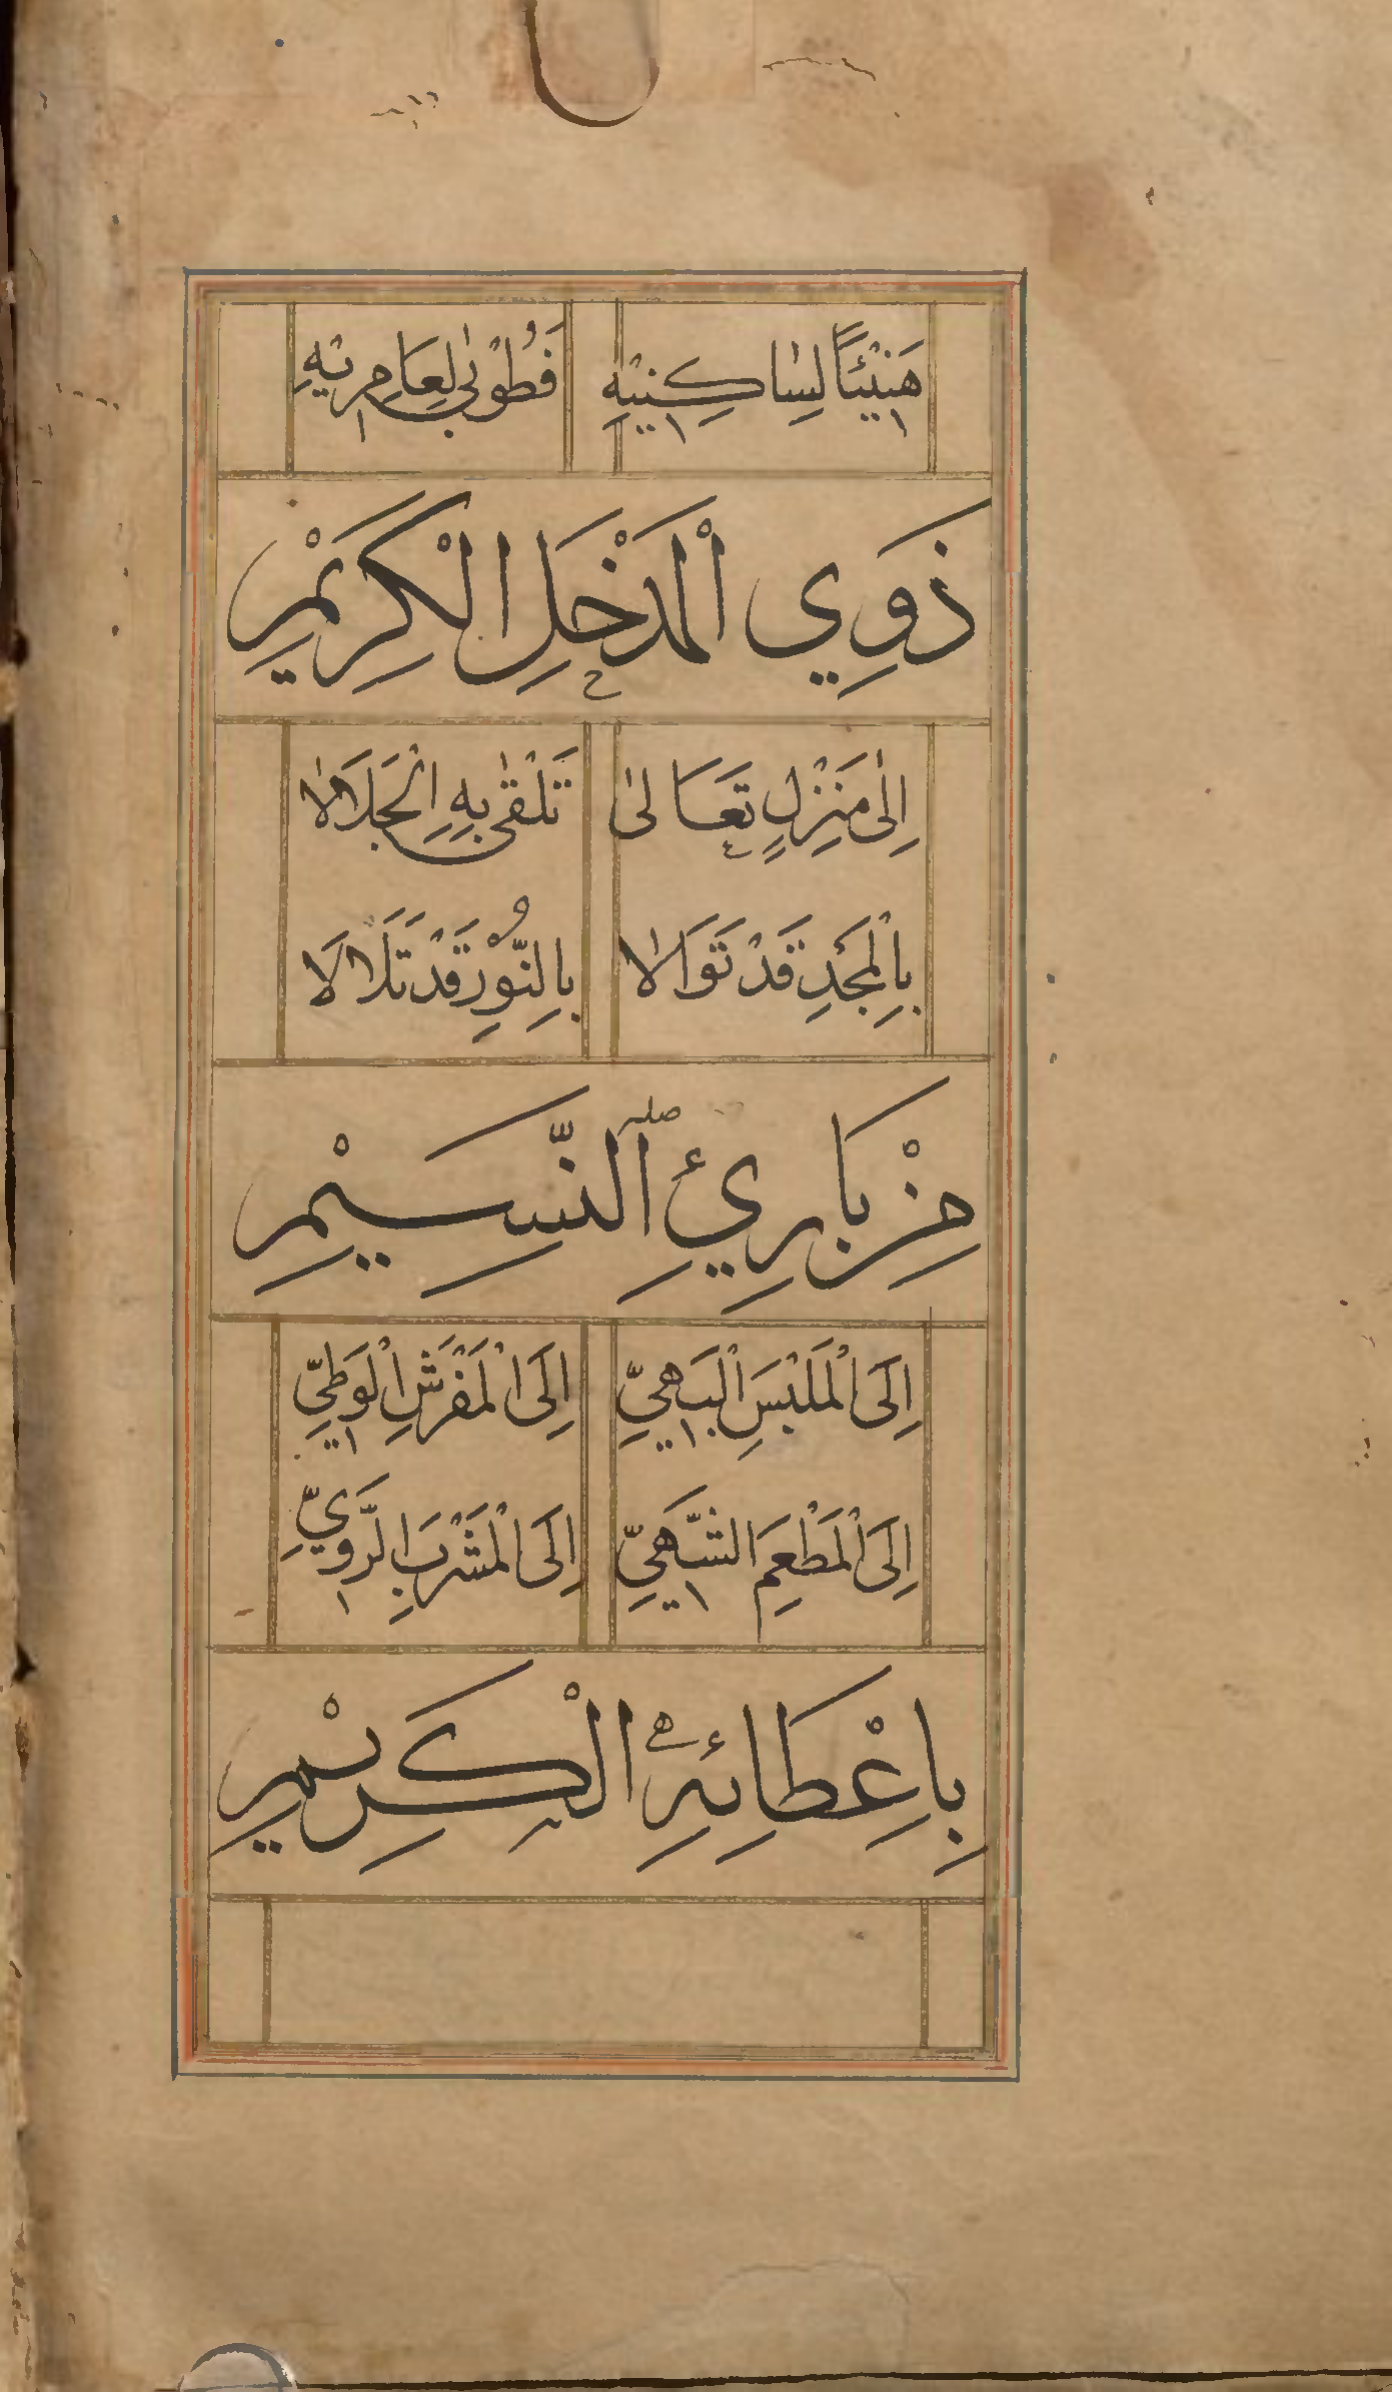 هَنِيْئًا لِسَاكِنِيْهِ فَطُوْبٰى لِعَامِرِيْهِ
ذَوِي الْمَدْخَلِ الْكَرِيْمِ
اِلٰى مَنْزِلٍ تَعَالىٰ تَلْقٰى بِهِ الْجَلَالَا
بِالْمَجْدِ قَدْ تَوَالَا بِالنُّوْرِ قَدْ تَلَالَا
مِنْ بَارِئِ النَّسِيْمِ
اِلَى الْمَلْبَسِ الْبَهِيِّ اِلَى الْمَفْرَشِ الْوَطِيِّ
اِلَى الْمَطْعَمِ الشَّهِيِّ اِلَى الْمَشْرَبِ الرَّوِيِّ
بِاِعْطَائِهِ الْكَرِيْمِ